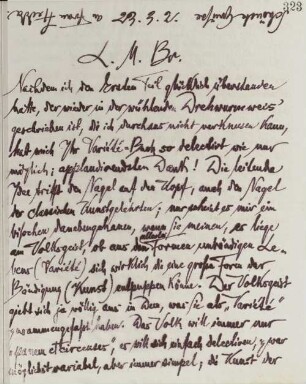 323
23.3.2.
L. M. Br.
Nachdem ich den ersten Teil glücklich überstanden
hatte, der wieder in der wühlenden Drehwurmweis
geschrieben ist, die ich durchaus nicht verknusen kann,
hat mich Ihr Variété-Buch so delectirt wie nur
möglich; applaudirendsten Dank! Die leitende
Idee trifft den Nagel auf den Kopf, auch den Nagel
der classischen Kunstgelehrten; nur scheint es mir ein
bischen danebengehauen, wenn Sie meinen, es liege
am Volksgeist, ob aus den Formen unbändigen Le-
bens (Variété) sich wirklich die eine große Form der
Bändigung (Kunst) entpuppen könne. Der Volksgeist
giebt sich ja völlig aus in Dem, was Sie als „Variété"
zusammengefaßt haben. Das Volk will immer nur
„panem et circenses"; es will sich einfach delectiren, zwar
möglichst variabel, aber immer simpel, die Kunst der